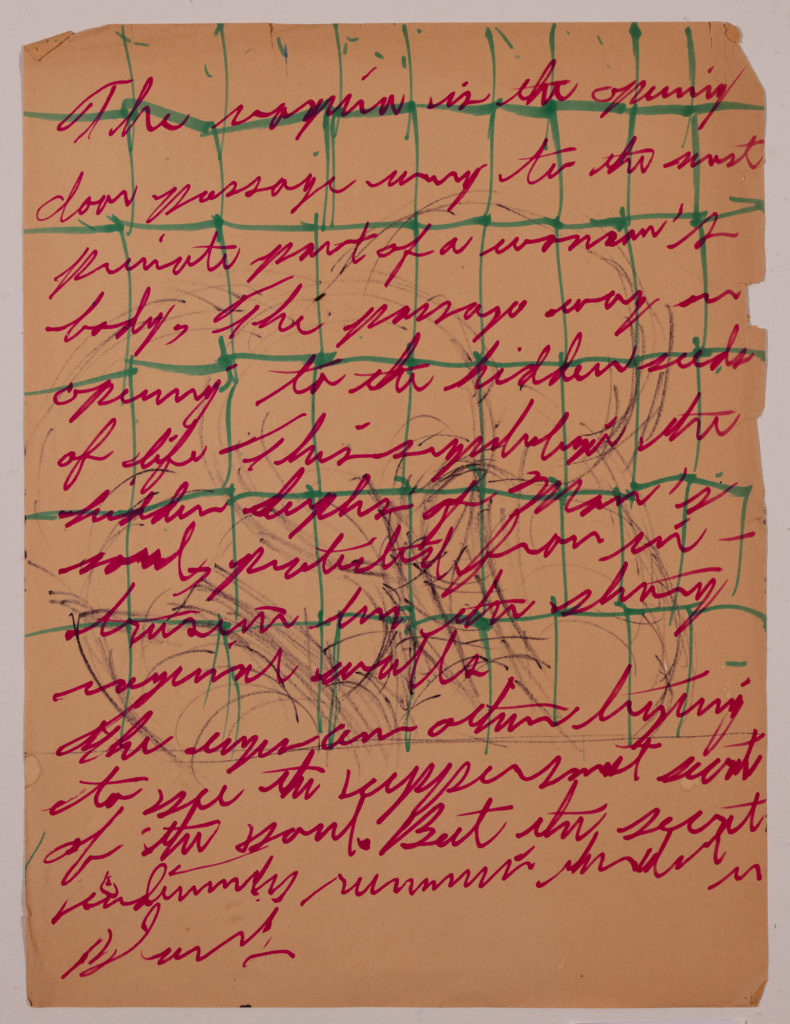 The vagina is the opening
door passage way to the most
private part of a woman's
body, The passage way or
opening to the hidden seeds
of life - This symbolizes the
hidden depths of Man's
soul, protected from in-
trusion by the
vaginal walls
the eyes are often trying
to see the uppermost secret
of the soul. But the secret
remains hidden in